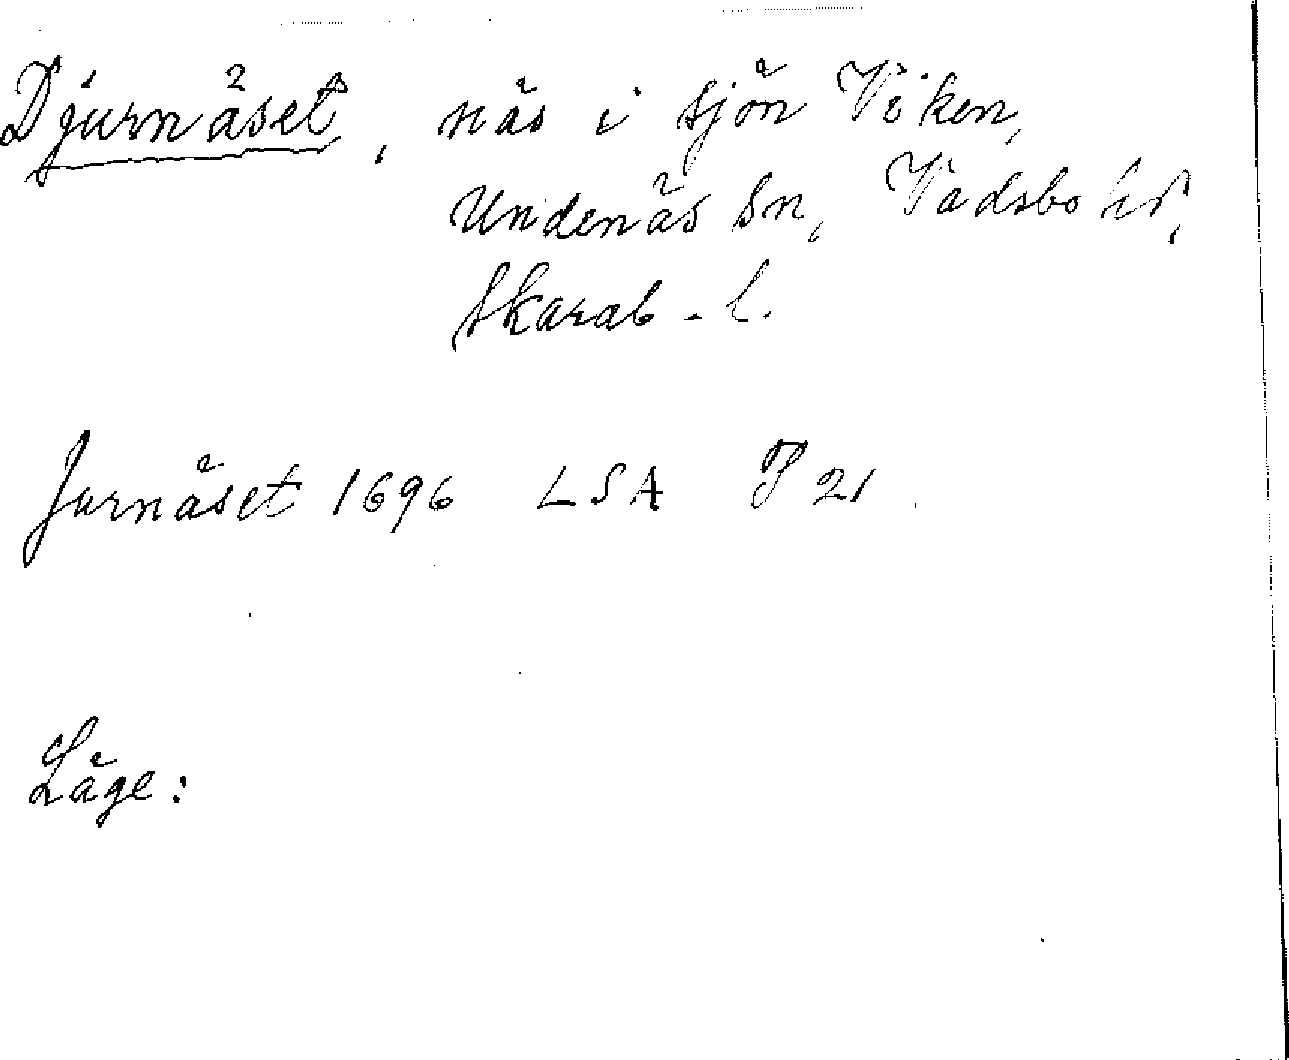 Djurnäset, näs i sjön Viken,
Undenäs sn, Vadsbo hd,
Skarab. l.
Jurnäset 1696 LSA P 21
Läge: